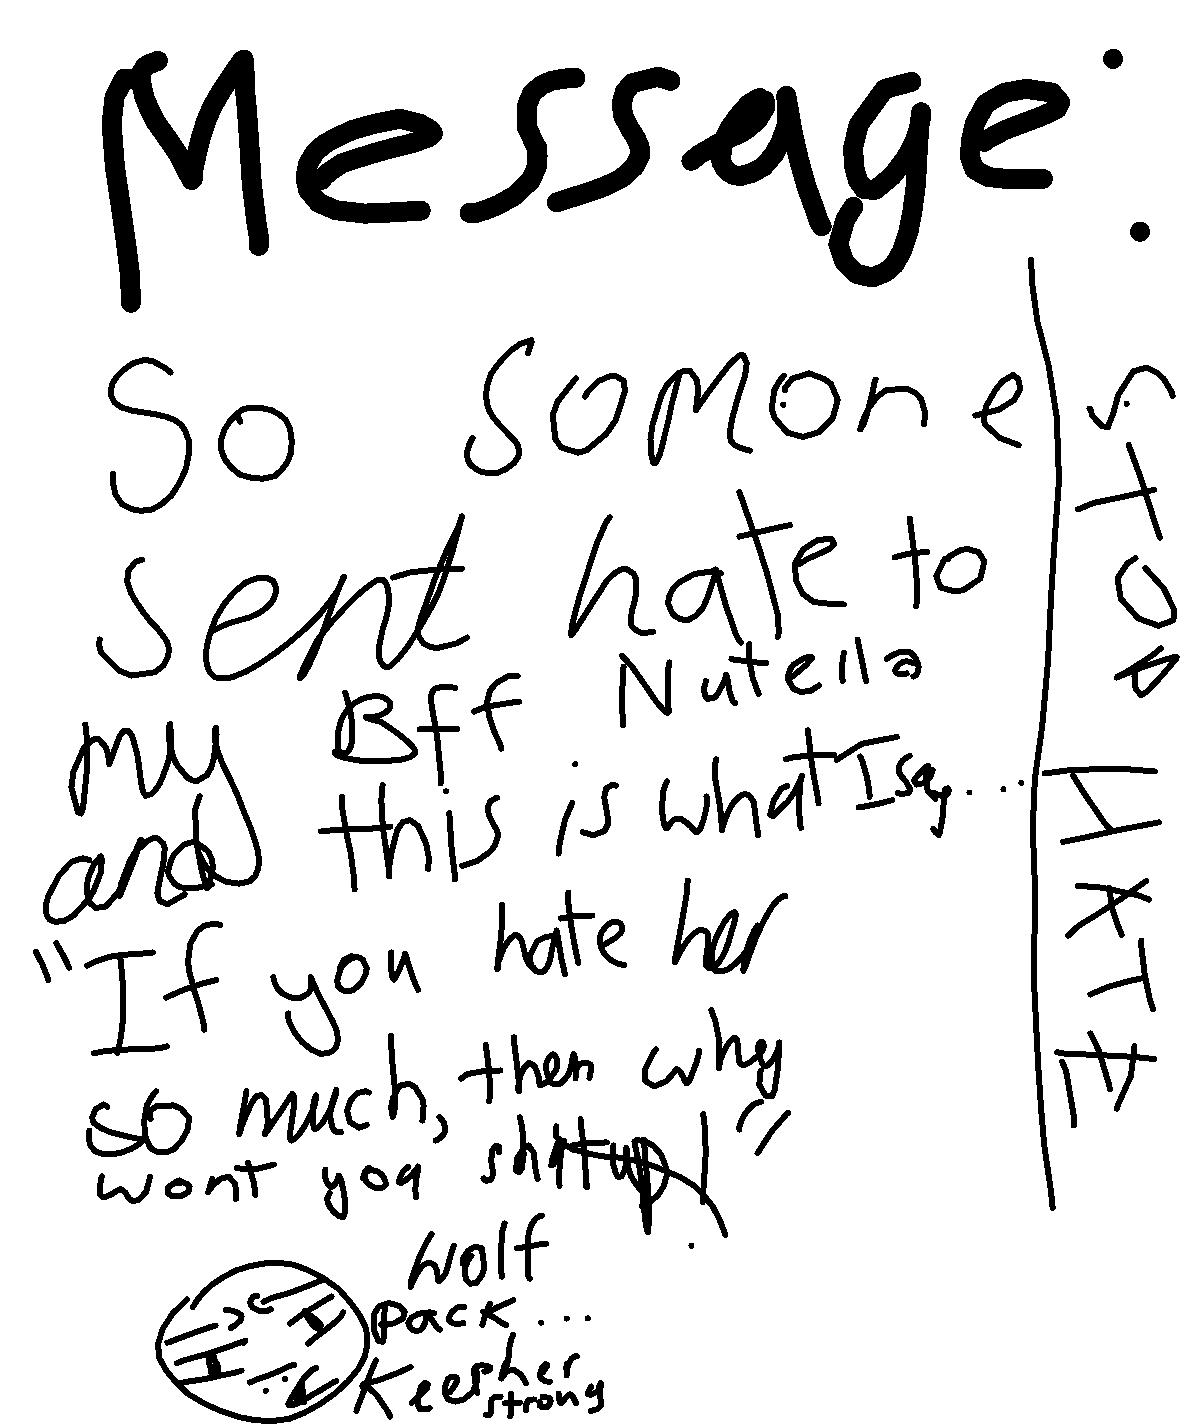 Message:
So somone
sent hate to
my Bff Nutella
and this is what I say....
"If you hate her
so much, then why
wont you shutup!"
wolf
pack...
Keesher
strong
STOP HATE!